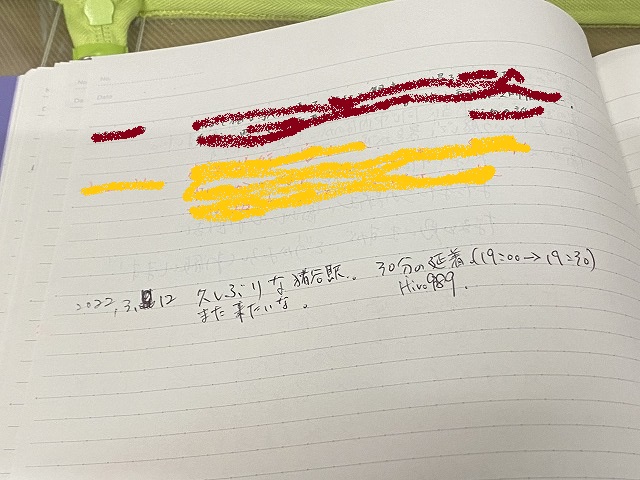 2022,3,12 久しぶりな猪谷駅. 30分の延着.(19:00→19:30)
また来たいな。 Hiro989.